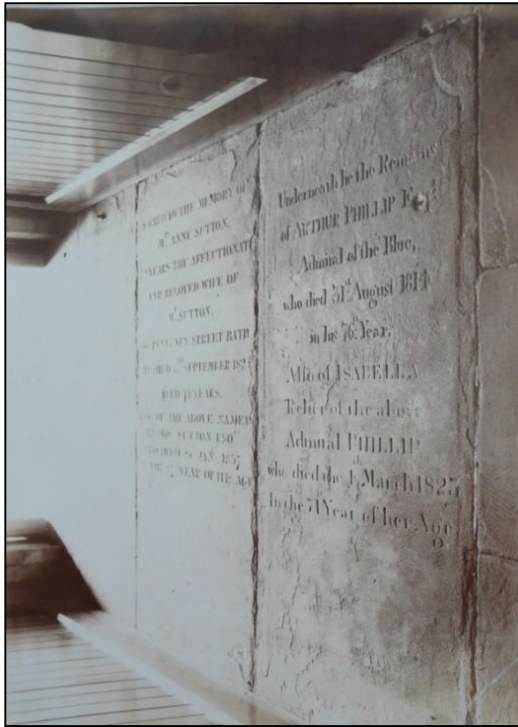 SACRED TO THE MEMORY OF
Mrs ANNE SUTTON,
YEARS THE AFFECTIONATE
AND BELOVED WIFE OF
Mr SUTTON,
STREET BATH
SEPTEMBER
AGED YEARS.
OF THE ABOVE NAMED
SUTTON ESQr
JAN.
YEAR OF HER AGE
Underneath lie the Remains
of ARTHUR PHILLIP Esqr
Admiral of the Blue,
who died 31st August 1814
in his 76 Year.
Also of ISABELLA
Relict of the above
Admiral PHILLIP
who died the 4th March 1823
In the 71 Year of her Age